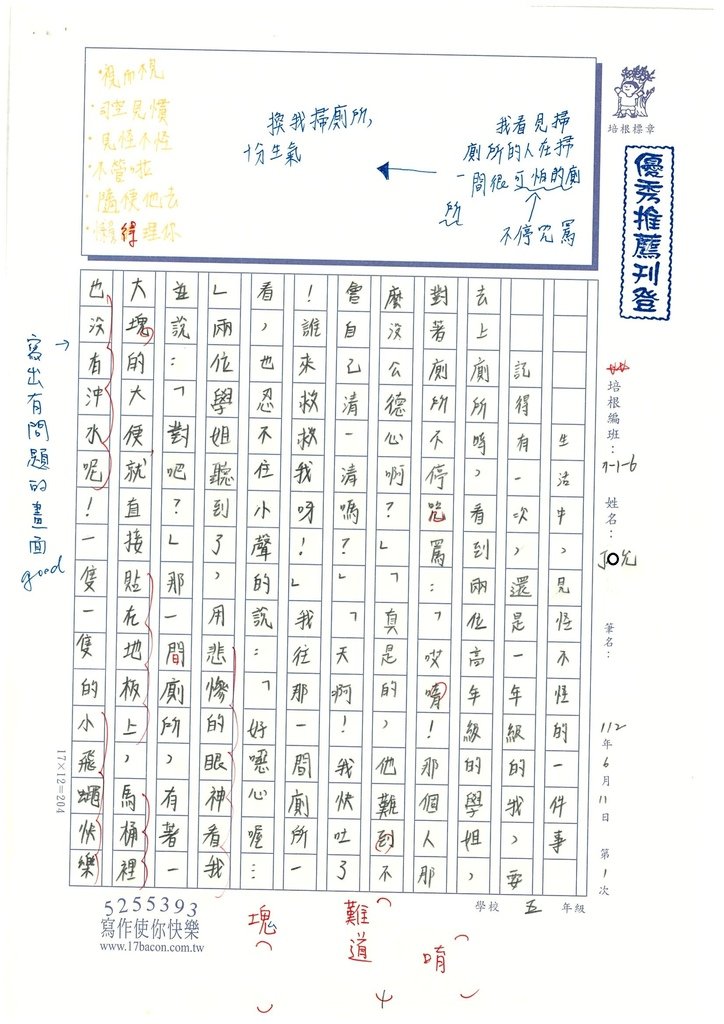 培根標章
優秀推薦刊登
我看見掃
廁所的人在掃
一間很可怕的廁
所
不停咒罵
換我掃廁所,
十分生氣
·視而不見
·司空見慣
·見怪不怪
·不管啦
·隨便他去
·懶得理你
培根編班:
7-1-6
姓名:
筆名:
112年6月11日 第1次
生活中,見怪不怪的一件事
記得有一次,還是一年級的我,要
去上廁所時,看到兩位高年級的學姐,
對著廁所不停咒罵:「哎唷!那個人那
麼沒公德心啊?「真是的,他難到不
會自己清一清嗎?」「天啊!我快吐了
!誰來救救我呀!」我往那一間廁所一
看,也忍不住小聲的說:「好噁心喔…
」兩位學姐聽到了,用悲慘的眼神看我
並說:「對吧?」那一間廁所,有著一
大塊的大便就直接貼在地板上,馬桶裡
也沒有沖水呢!一隻一隻的小飛蠅快樂
寫出有問題的畫面
good
17×12=204
學校 五 年級
唷
難道
塊
5255393
寫作使你快樂
www.17bacon.com.tw